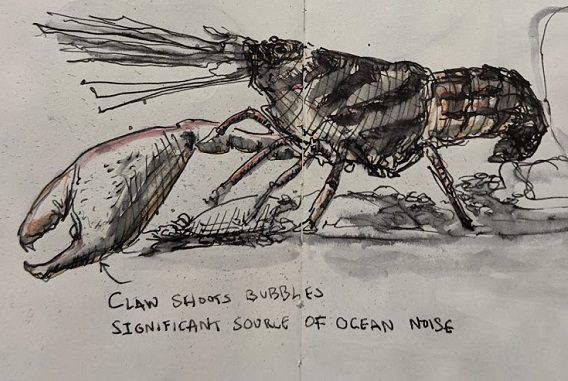 CLAW SHOOTS BUBBLES
SIGNIFICANT SOURCE OF OCEAN NOISE